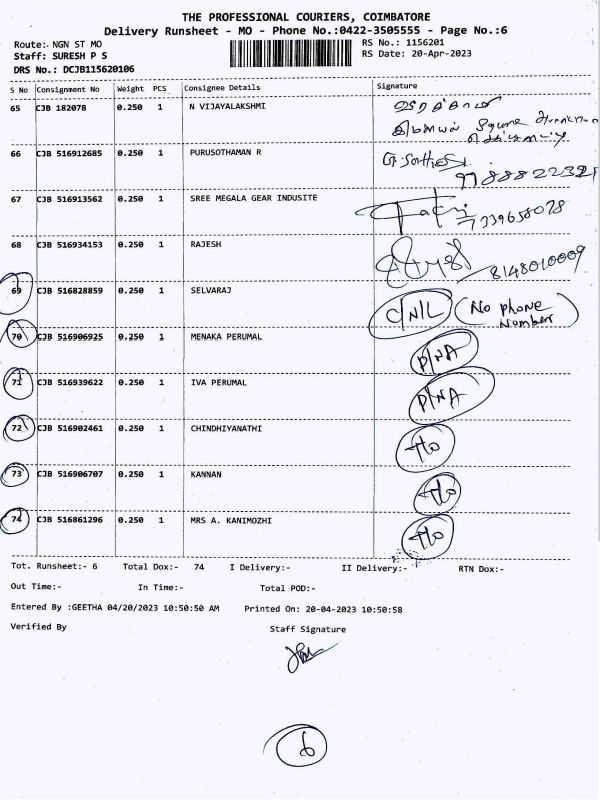 THE PROFESSIONAL COURIERS, COIMBATORE
Delivery Runsheet - MO - Phone No.:0422-3505555 - Page No.:6
Route:. NGN ST MO
RS No.: 1156201
Staff: SURESH P S
RS Date: 20-Apr-2023
DRS No.: DCJB115620106
S No Consignment No Weight PCS Consignee Details Signature
65 CJB 182078 0.250 1 N VIJAYALAKSHMI
Square
66 CJB 516912685 0.250 1 PURUSOTHAMAN R
67 CJB 516913562 0.250 1 SREE MEGALA GEAR INDUSITE
68 CJB 516934153 0.250 1 RAJESH
8148010009
69 CJB 516828859 0.250 1 SELVARAJ C/N/L (No phone
Number)
70 CJB 516906925 0.250 1 MENAKA PERUMAL P/NA
71 CJB 516939622 0.250 1 IVA PERUMAL P/NA
72 CJB 516902461 0.250 1 CHINDHIYANATHI
73 CJB 516906707 0.250 1 KANNAN
74 CJB 516861296 0.250 1 MRS A. KANIMOZHI
Tot. Runsheet:- 6 Total Dox:- 74 I Delivery:- II Delivery:- RTN Dox:-
Out Time:- In Time:- Total POD:-
Entered By :GEETHA 04/20/2023 10:50:50 AM Printed On: 20-04-2023 10:50:58
Verified By Staff Signature
6